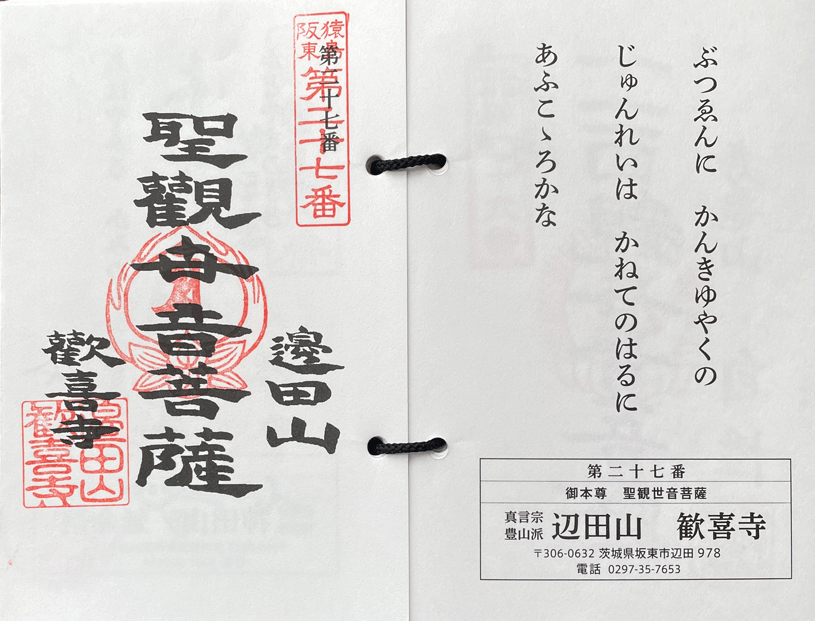 ぶつゑんに　かんきゆやくの
じゅんれいは　かねてのはるに
あふこゝろかな
第二十七番
御本尊　聖観世音菩薩
真言宗
豊山派
辺田山　歓喜寺
〒306-0632 茨城県坂東市辺田 978
電話 0297-35-7653
猿島
阪東
第二十七番
第二十七番
邊田山
聖觀世音菩薩
歡喜寺
邊田山
歡喜寺